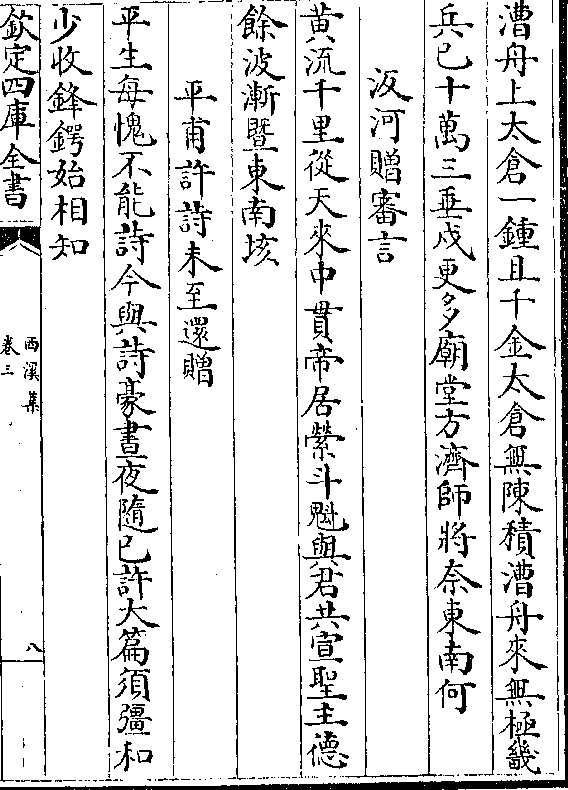 漕舟上太倉一鍾且千金太倉無陳積漕舟來無極畿
兵已十萬三垂戍更多廟堂方濟師將奈東南何
汳河贈審言
黄流千里從天來中貫帝居縈斗魁與君共宣聖主德
餘波漸暨東南垓
平甫許詩未至還贈
平生每愧不能詩今與詩豪晝夜隨已許大篇須彊和
少收鋒鍔始相知
欽定四庫全書
西溪集
卷三
八